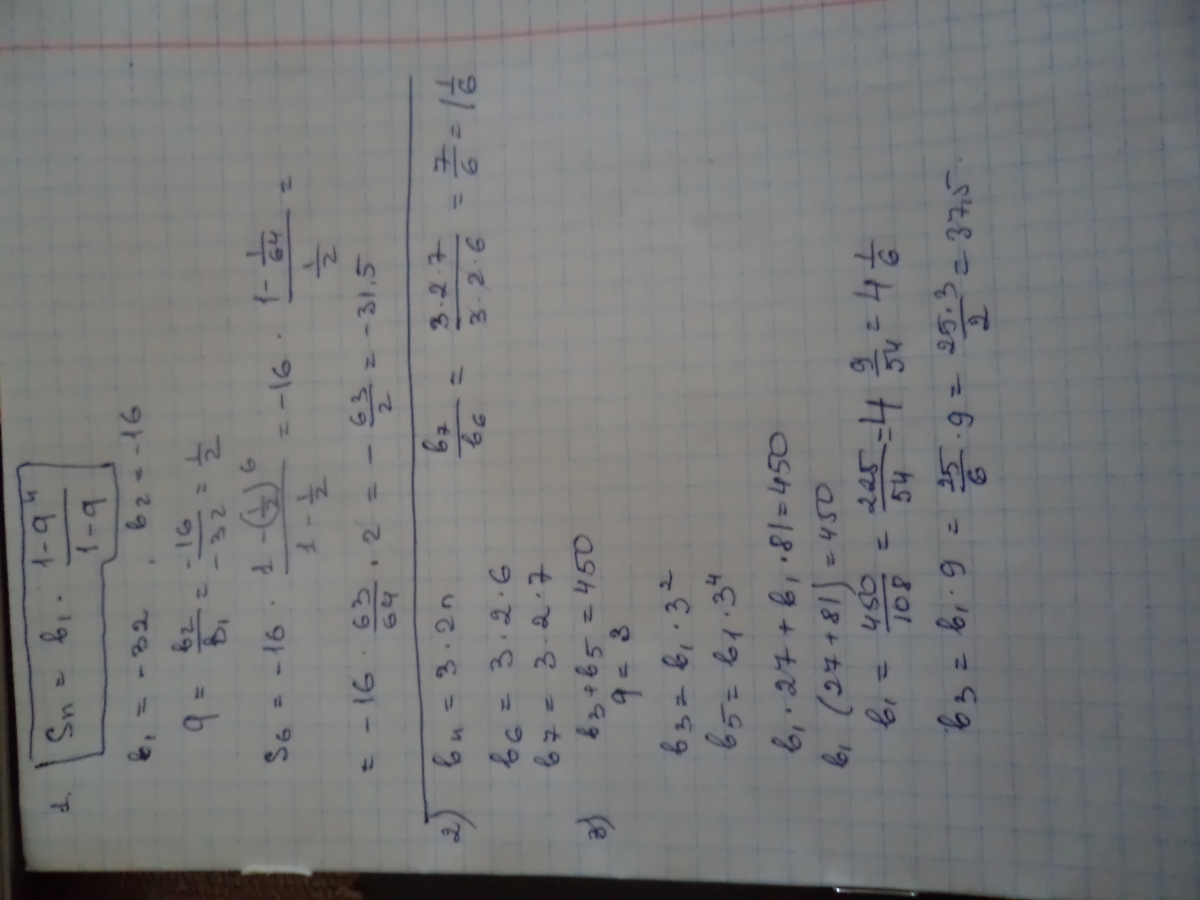 1. Sn = b₁ · (1-q^n)/(1-q)
b₁ = -32 . b₂ = -16
q = b₂/b₁ = -16/-32 = 1/2
S₆ = -16 · (1-(1/2)^6)/(1-1/2) = -16 · (1-1/64)/(1/2) =
= -16 · 63/64 · 2 = - 63/2 = -31,5
2) bn = 3·2n
b₆ = 3·2·6
b₇ = 3·2·7
b₇/b₆ = (3·2·7)/(3·2·6) = 7/6 = 1 1/6
3) b₃+b₅ = 450
q = 3
b₃ = b₁·3²
b₅ = b₁·3⁴
b₁·27 + b₁·81 = 450
b₁(27+81) = 450
b₁ = 450/108 = 225/54 = 4 9/54 = 4 1/6
b₃ = b₁·9 = 25/6·9 = (25·3)/2 = 37,5.